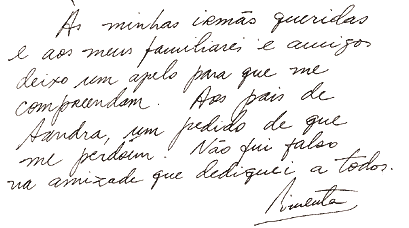 Às minhas irmãs queridas
e aos meus familiares e amigos
deixo um apelo para que me
compreendam. Aos pais de
Sandra, um pedido de que
me perdoim. Não fui falso
na amizade que dediquei a todos.
Pimenta